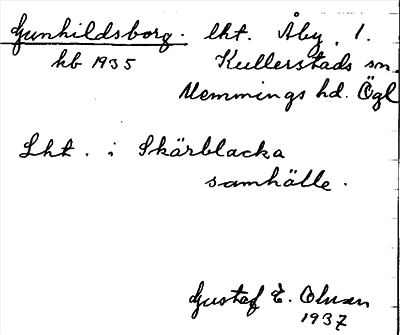 Gunhildsborg. lht. Åby, 1.
hb 1935 Kullerstads sn.
Memmings hd. Ögl
Lht. i Skärblacka
samhälle.
Gustaf E. Olsson
1937